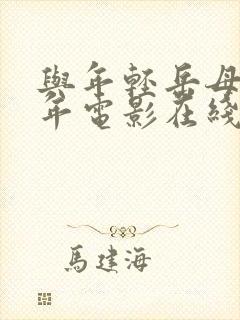 與年輕岳母
年電影在綫
馬建海